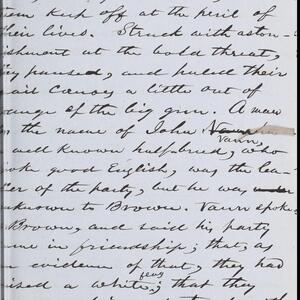 them keep off at the peril of
their lives. Struck with aston-
ishment at the bold threat,
they paused, and pulled their
said Canoes a little out of
range of the big gun. A man
in the name of John
Vann,
well known half-breed, who
spoke good English, was the lea-
der of the party, but he was
unknown to Brown. Vann spoke
Brown, and said his party
came in friendship; that, as
an evidence of that, they had
raised a white flag; that they